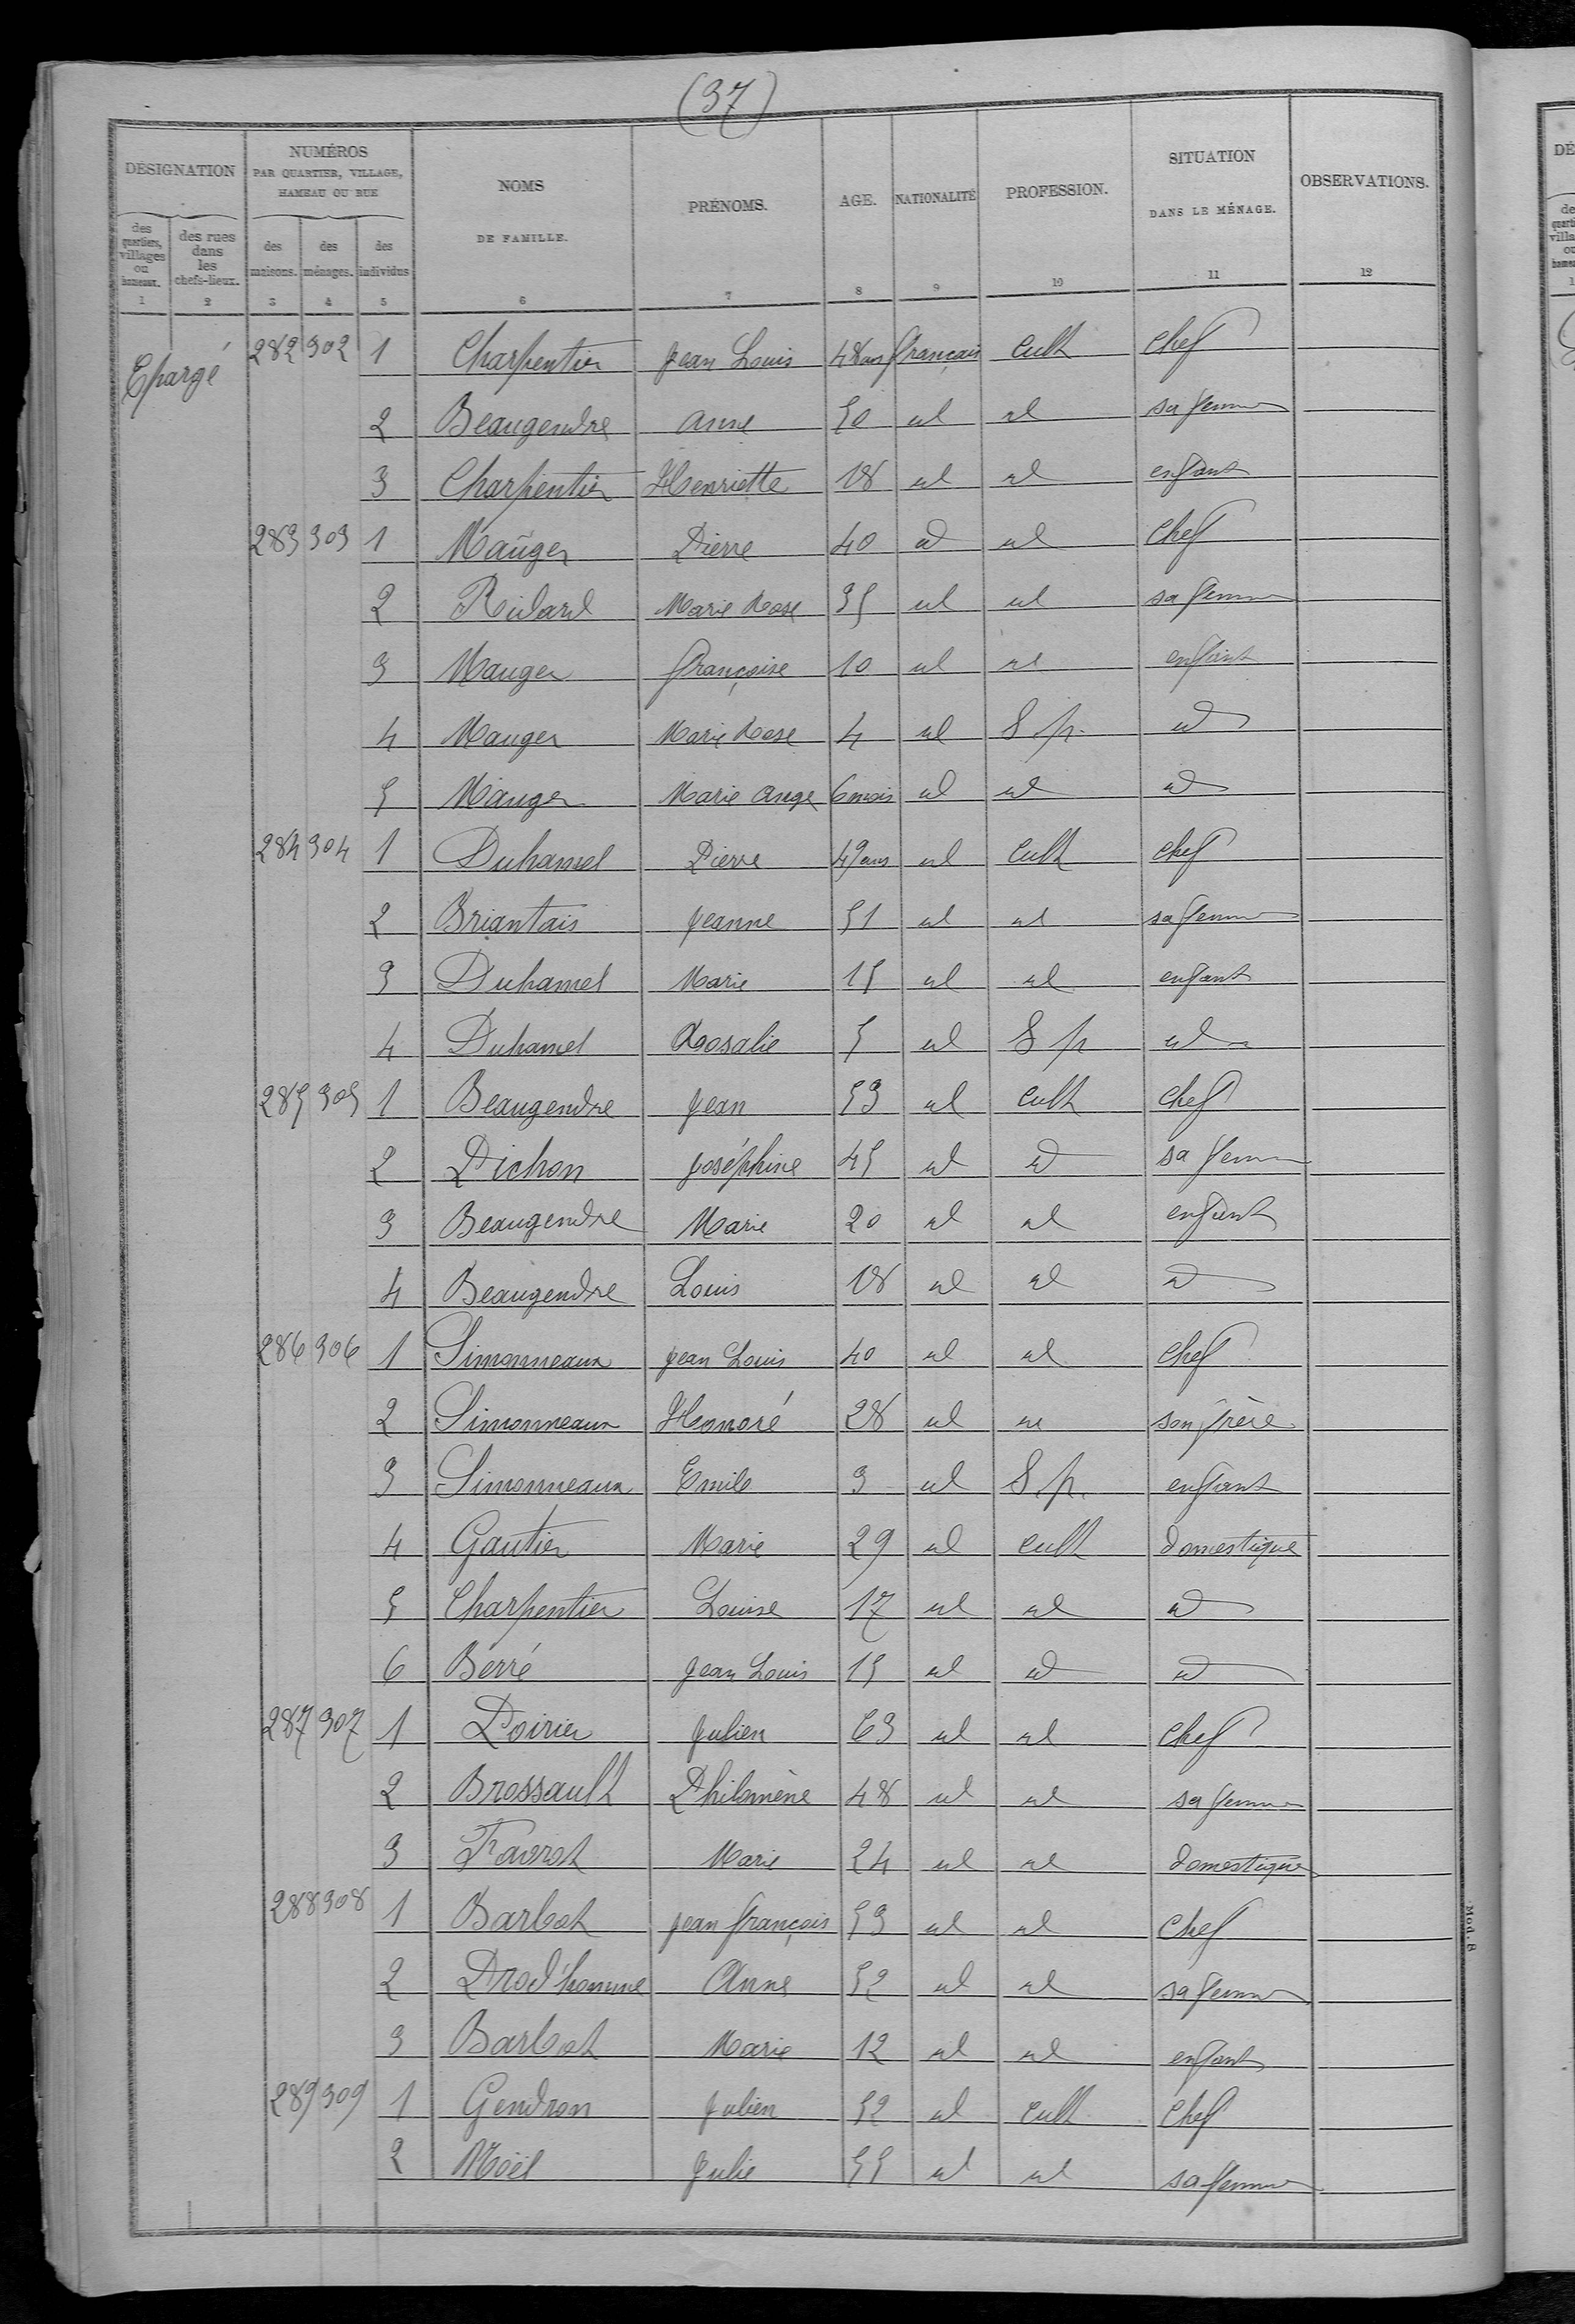 (37)
DÉSIGNATION
NUMÉROS
PAR QUARTIER, VILLAGE,
HAMEAU OU RUE
NOMS
DE FAMILLE.
PRÉNOMS.
AGE.
NATIONALITÉ
PROFESSION.
SITUATION
DANS LE MÉNAGE.
OBSERVATIONS.
des quartiers, villages ou hameaux.
des rues dans les chefs-lieux.
des maisons.
des ménages.
des individus
1 2 3 4 5 6 7 8 9 10 11 12
Epargé 282 302 1 Charpentier Jean Louis 48 ans français cult chef
2 Beaugendre Anne 50 id id sa femme
3 Charpentier Henriette 18 id id enfant
283 303 1 Mauger Pierre 40 id id chef
2 Ridard Marie Rose 35 id id sa femme
3 Mauger françoise 10 id id enfant
4 Mauger Marie Rose 4 id S p. id
5 Mauger Marie Ange 6 mois id id id
284 304 1 Duhamel Pierre 49 ans id cult chef
2 Briantais Jeanne 51 id id sa femme
3 Duhamel Marie 15 id id enfant
4 Duhamel Rosalie 5 id S p id
285 305 1 Beaugendre Jean 53 id cult chef
2 Pichon Joséphine 45 id id sa femme
3 Beaugendre Marie 20 id id enfant
4 Beaugendre Louis 18 id id id
286 306 1 Simonneaux Jean Louis 40 id id chef
2 Simonneaux Honoré 28 id id son frère
3 Simonneaux Emile 3 id S.p. enfant
4 Gautier Marie 29 id cult domestique
5 Charpentier Louise 17 id id id
6 Berré Jean Louis 15 id id id
287 307 1 Poirier Julien 63 id id chef
2 Brossault Philomène 48 id id sa femme
3 Favrot Marie 24 id id domestique
288 308 1 Barbot Jean françois 53 id id chef
2 Prod'homme Anne 52 id id sa femme
3 Barbot Marie 12 id id enfant
289 309 1 Gendron Julien 52 id cult chef
2 Noël Julie 55 id id sa femme
Mod. 8